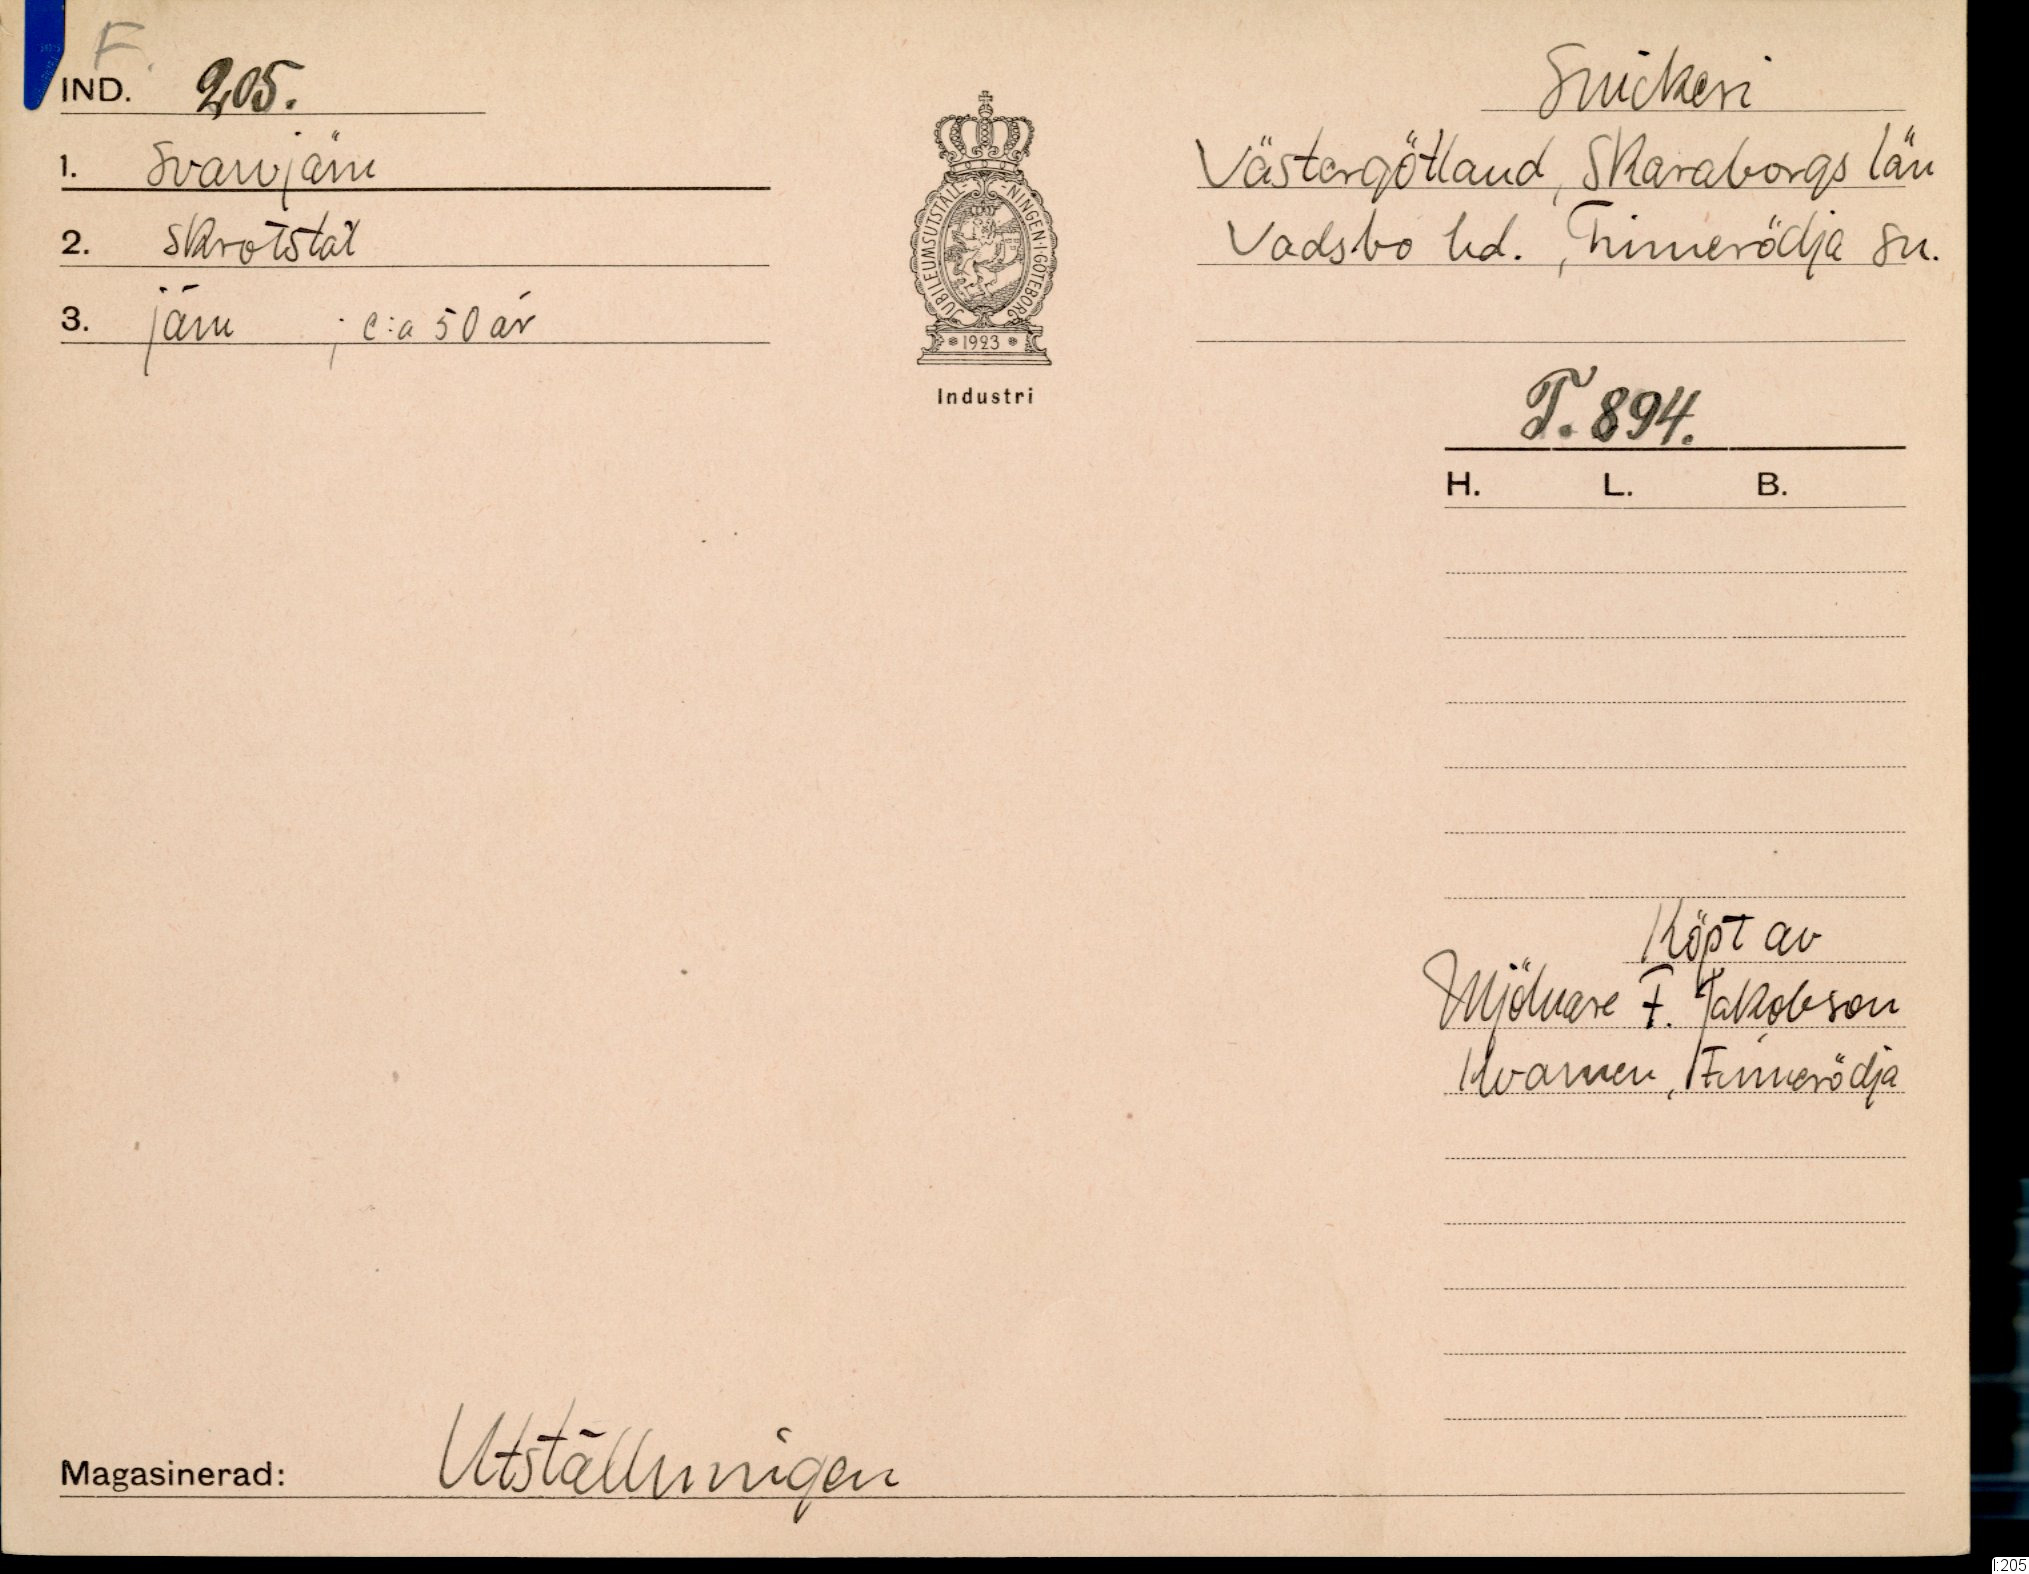 F.
IND. 205.
Snickeri
1. Svarvjärn
Västergötland, Skaraborgs län
2. Skrotstål
Vadsbo hd., Finnerödja sn.
3. järn ; c:a 50 år
JUBILEUMSUTSTÄLL-NINGEN·I·GÖTEBORG
1923
Industri
T. 894.
H. L. B.
Köpt av
Mjölnare F. Jakobson
Kvarnen, Finnerödja
Magasinerad: Utställningen
I:205